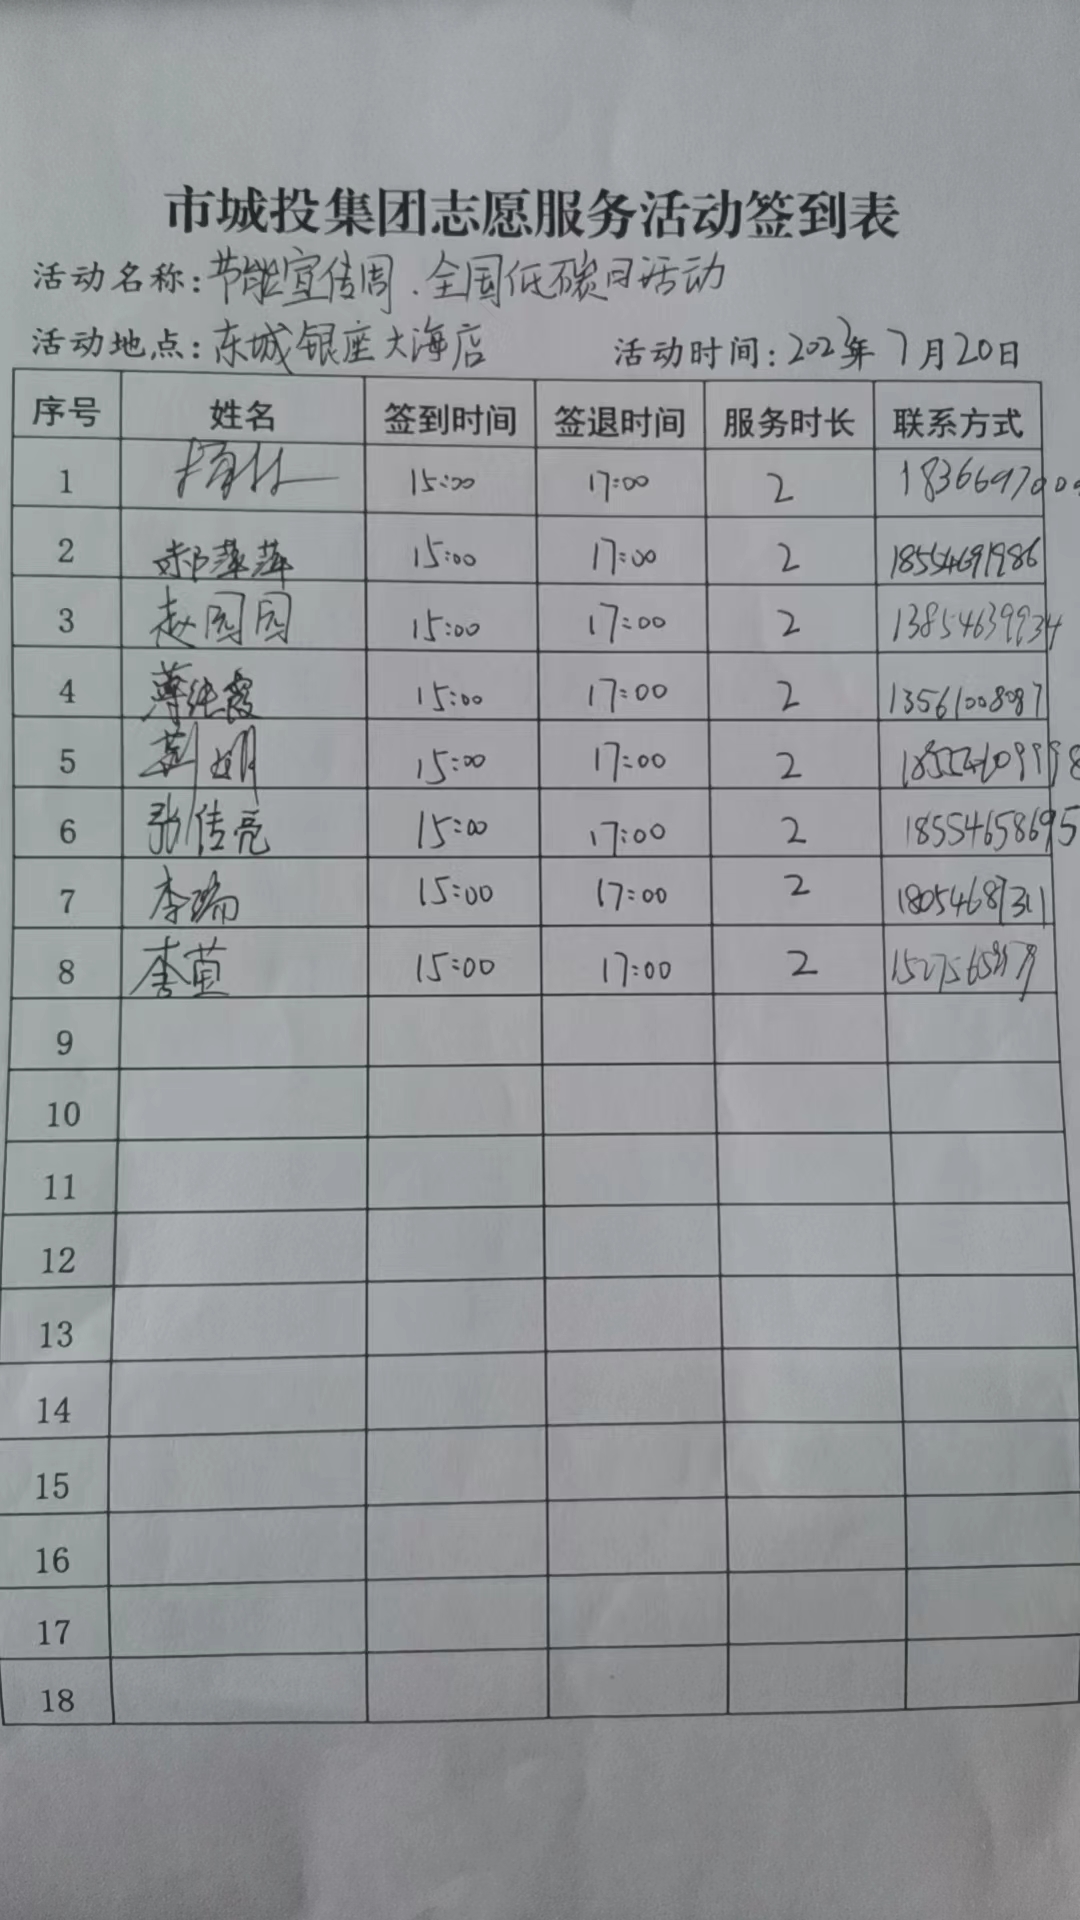 市城投集团志愿服务活动签到表
活动名称:节能宣传周、全国低碳日活动
活动地点:东城银座大海店 活动时间:2023年7月20日
序号 姓名 签到时间 签退时间 服务时长 联系方式
1 15:00 17:00 2
2 郝萍萍 15:00 17:00 2 18554691986
3 赵园园 15:00 17:00 2 13854639934
4 薄纯霞 15:00 17:00 2 13561008087
5 15:00 17:00 2
6 张佳亮 15:00 17:00 2 18554658695
7 李瑞 15:00 17:00 2
8 15:00 17:00 2
9
10
11
12
13
14
15
16
17
18